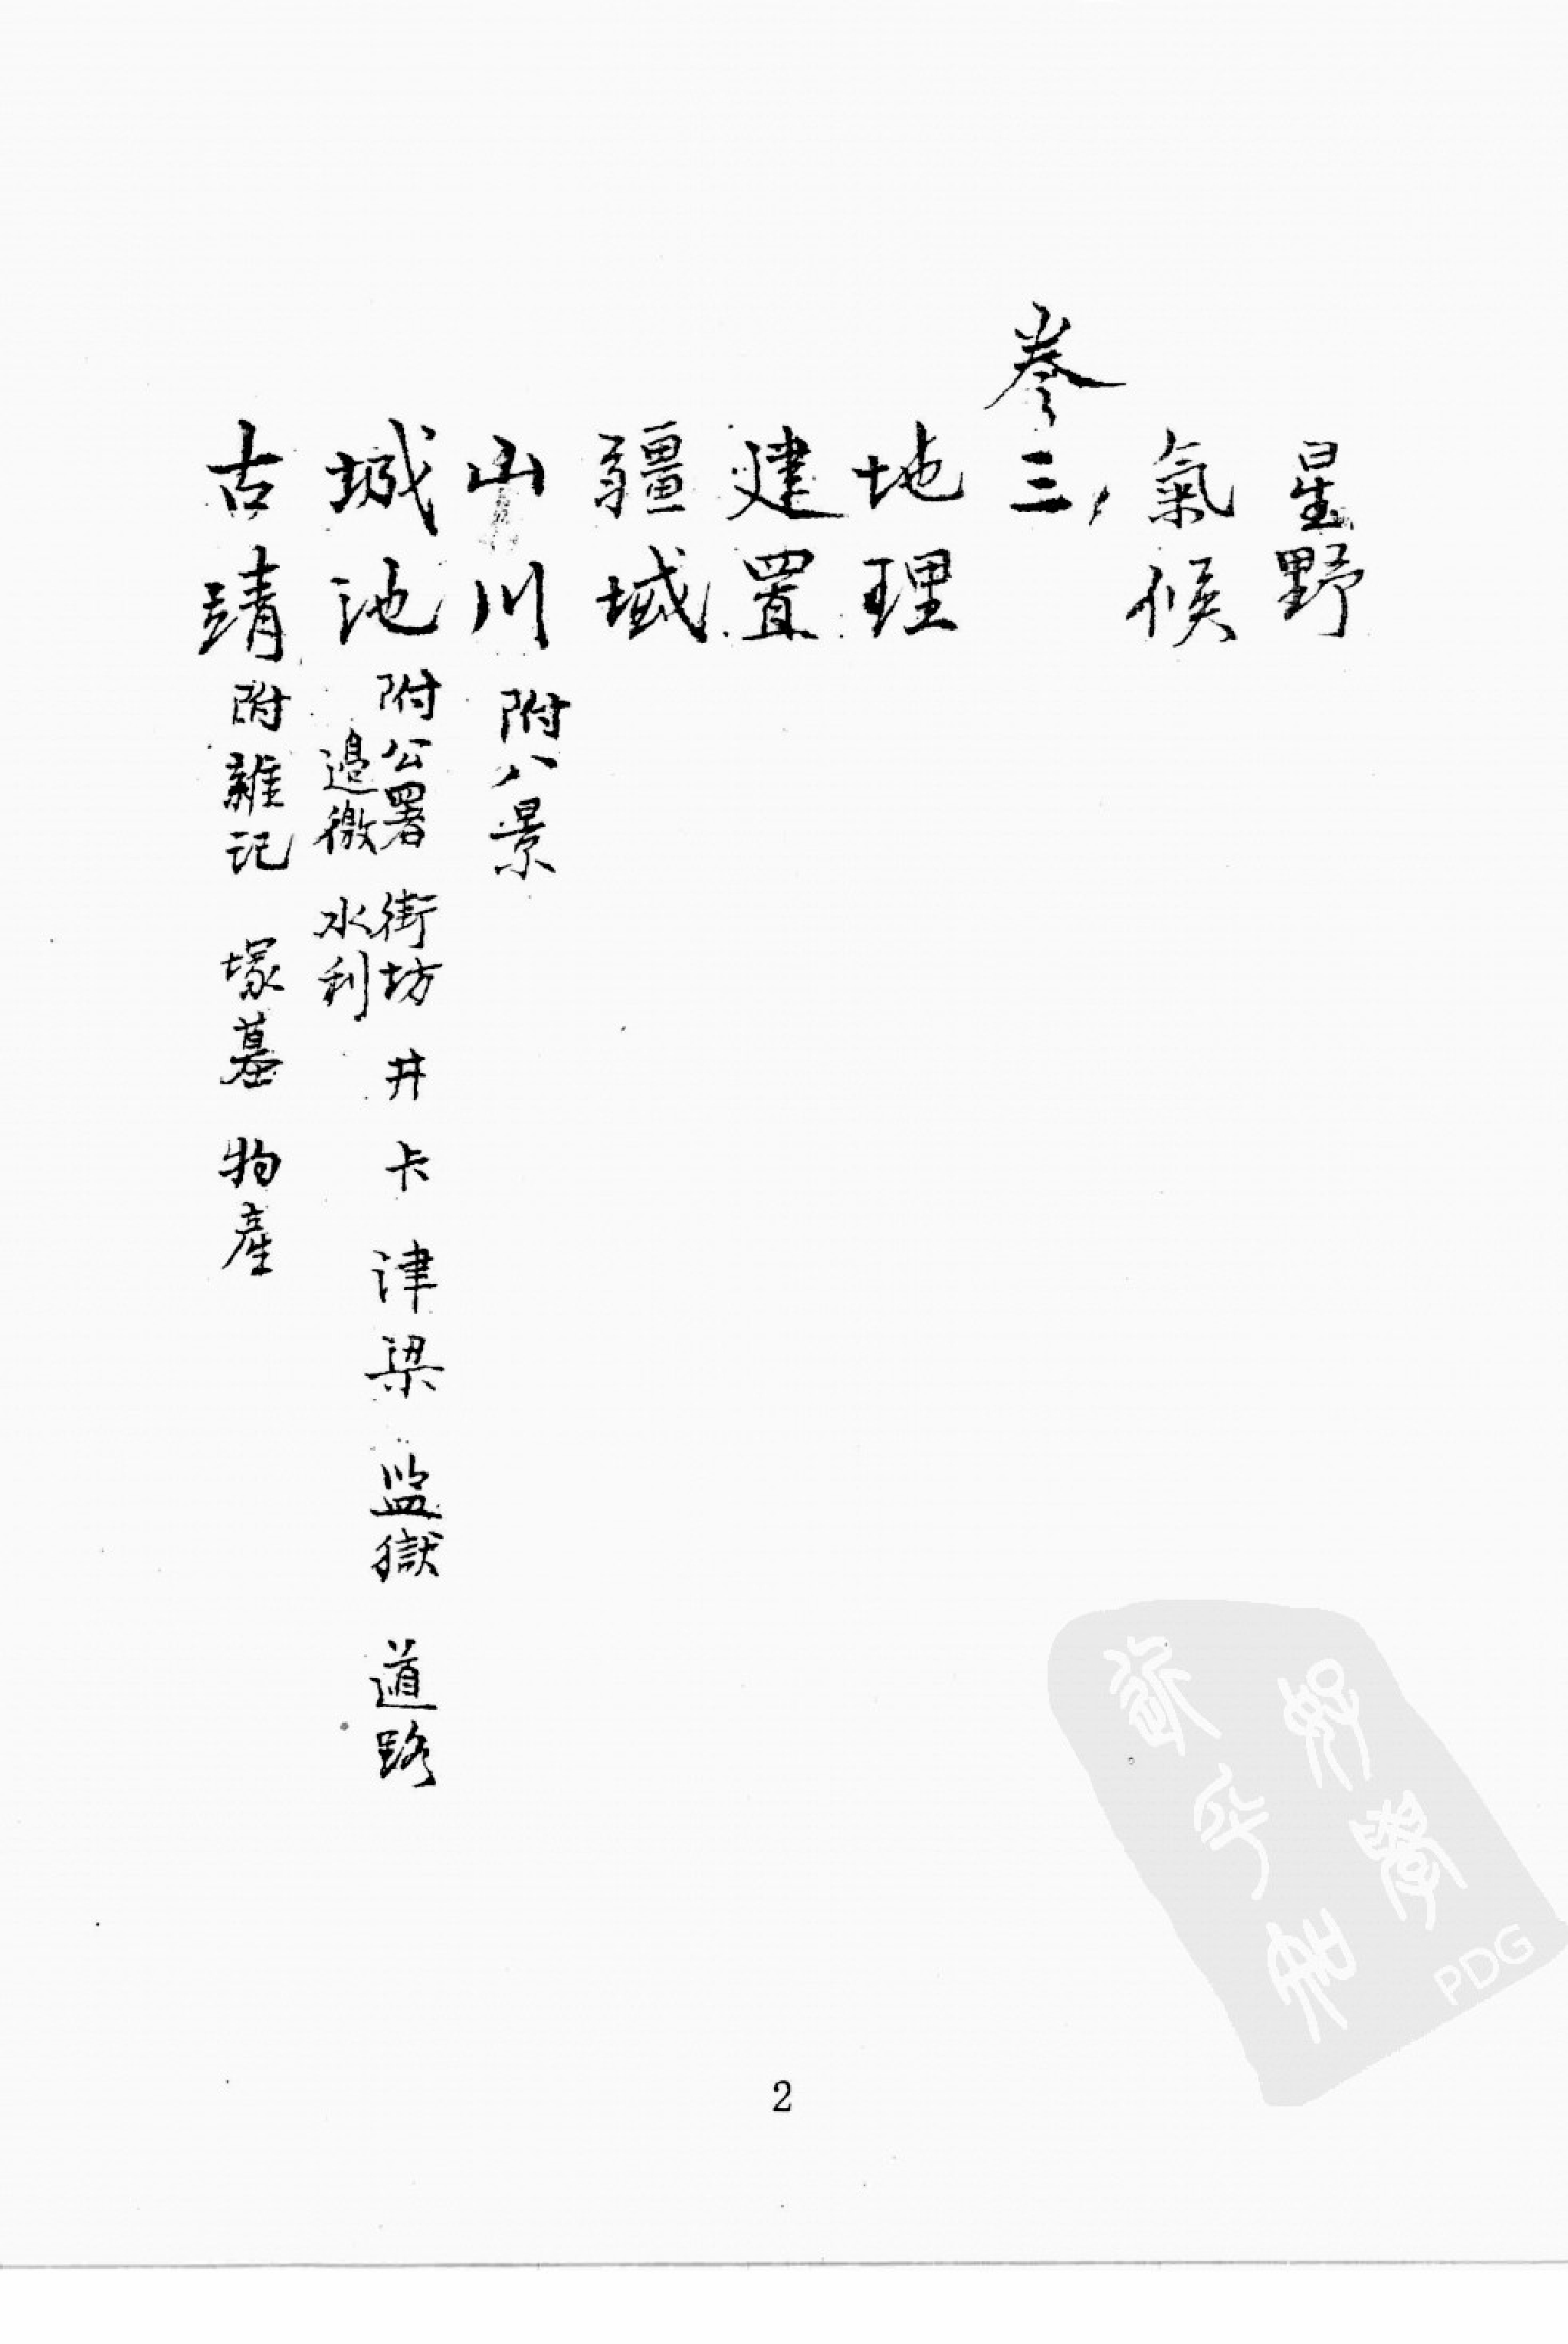 星野
氣候
卷三,
地理
建置
疆域
山川 附八景
城池 附公署 街坊 井 卡 津梁 監獄 道路
邊徼 水利
古靖 附雜記 塚墓 物產
PDG
2